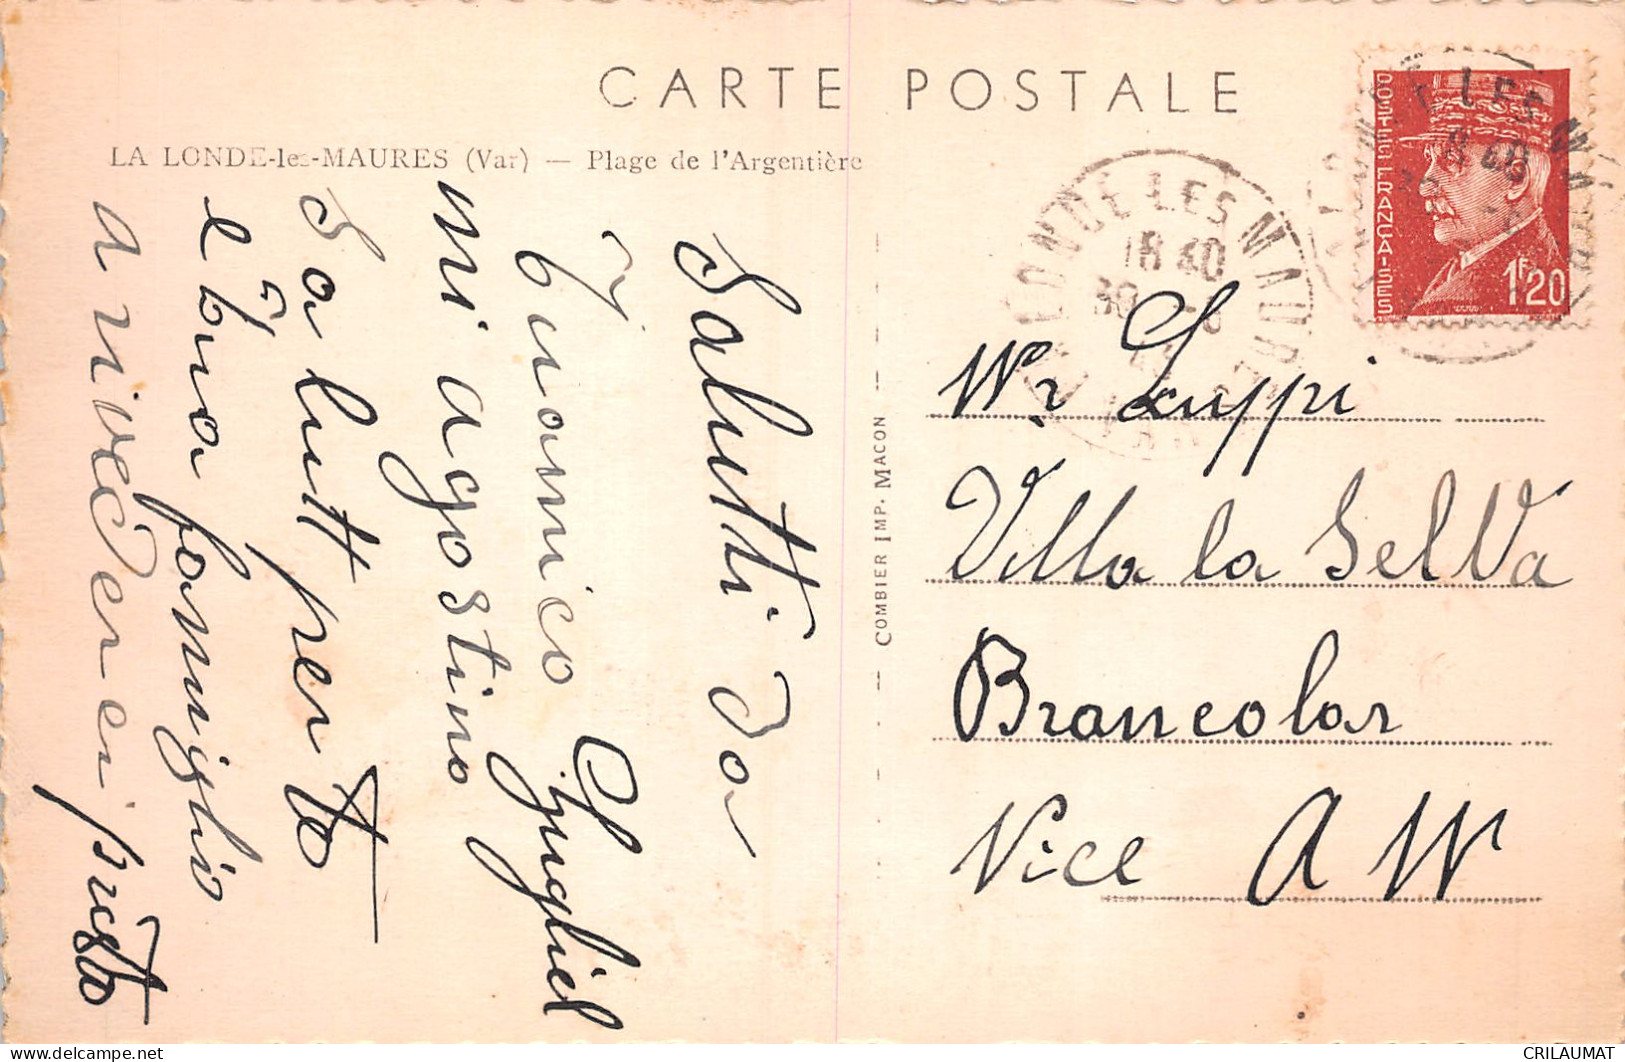 CARTE POSTALE
LA LONDE-les-MAURES (Var) — Plage de l'Argentière
Saluti da
Tuo amico
Gugliel
mi agostino
Salutt per to
e Tua famiglio
a rivederci presto
COMBIER IMP. MACON
POSTES FRANÇAISES
1F20
LA LONDE LES MAURES
18 40
30 -6
VAR
Mr Luppi
Villa la Selva
Brancolar
Nice A M
CRILAUMAT